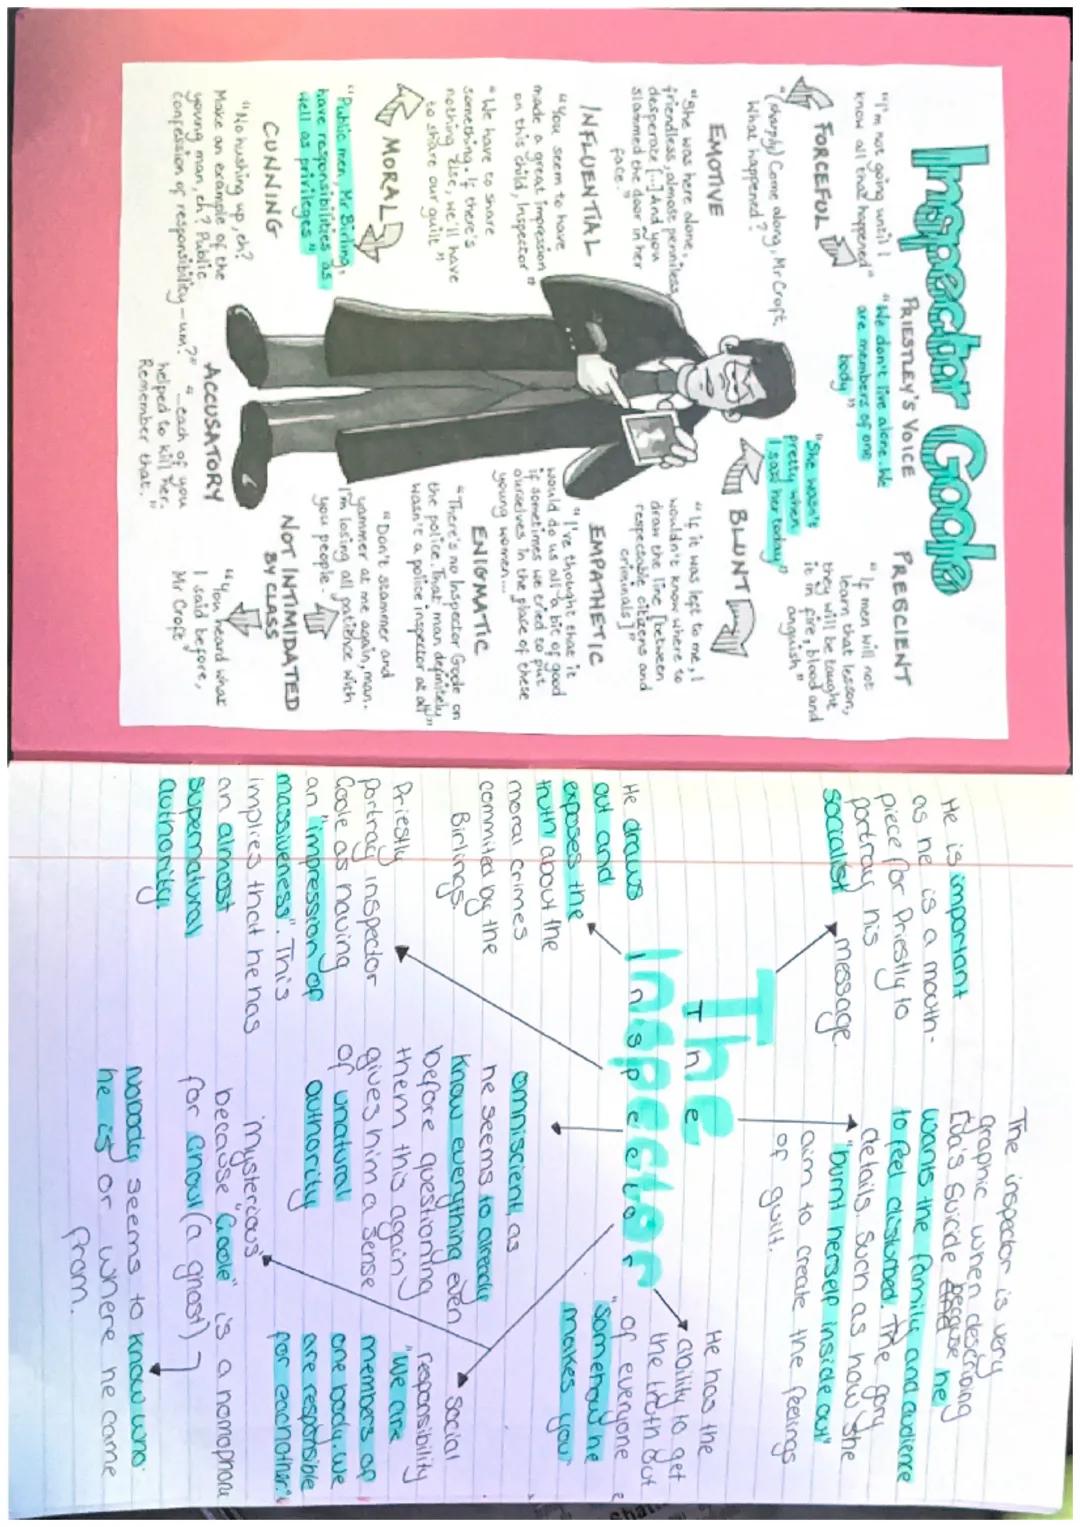 Inspector Goole
PRIESTLEY'S VOICE
"We don't live alone. We
are members of one
body"
PRESCIENT
"If men will not
learn that lesson,
they will be taught
it in fire, blood and
anguish"
"I'm not going until I
know all that happened"
FORCEFUL
"(sharply) Come along, Mr Croft.
What happened?
EMOTIVE
"She was here alone,
friendless, almost penniless,
desperate [...] And you
slammed the door in her
face."
INFLUENTIAL
"You seem to have
made a great impression
on this child, Inspector"
"We have to share
something. If there's
nothing else, we'll have
to share our guilt"
MORAL
"Public men, Mr Birling,
have responsibilities as
well as privileges"
CUNNING
"No hushing up, eh?
Make an example of the
young man, eh? Public
confession of responsibility - um?"
ACCUSATORY
"...each of you
helped to kill her.
Remember that."
"She wasn't
pretty when
I said her today"
BLUNT
"If it was left to me, I
wouldn't know where to
draw the line [between
respectable citizens and
criminals]"
EMPATHETIC
"I've thought that it
would do us all a bit of good
if sometimes we tried to put
ourselves in the place of these
young women...
ENIGMATIC
"There's no Inspector Goole on
the police. That man definitely
wasn't a police inspector at all"
"Don't stammer and
yammer at me again, man.
I'm losing all patience with
you people.
NOT INTIMIDATED
BY CLASS
"You heard what
I said before,
Mr Croft"
The
Inspector
He is important
as he is a mouth-
piece for Priestly to
portray his
socialist message.
The inspector is very
graphic when describing
Eva's suicide because he
wants the family and audience
to feel disturbed. The gory
details. Such as how she
"burnt herself inside out"
aim to create the feelings
of guilt.
He draws
out and
exposes the
truth about the
moral crimes
commited by the
Birlings.
He has the
ability to get
the truth out
of everyone
"somehow he
makes you"
Priestly
portray inspector
Goole as having
an "impression of
massiveness". This
implies that he has
an almost
supernatural
authority.
omniscient, as
he seems to already
know everything even
before questioning
them this again
gives him a sense
of unatural
authority
social
responsibility
"We are
members of
one body. we
are responsible
for eachother."
'mysterious'
because "Goole" is a homophone
for Ghoul (a ghost)
Nobody seems to know who
he is or where he came
from.